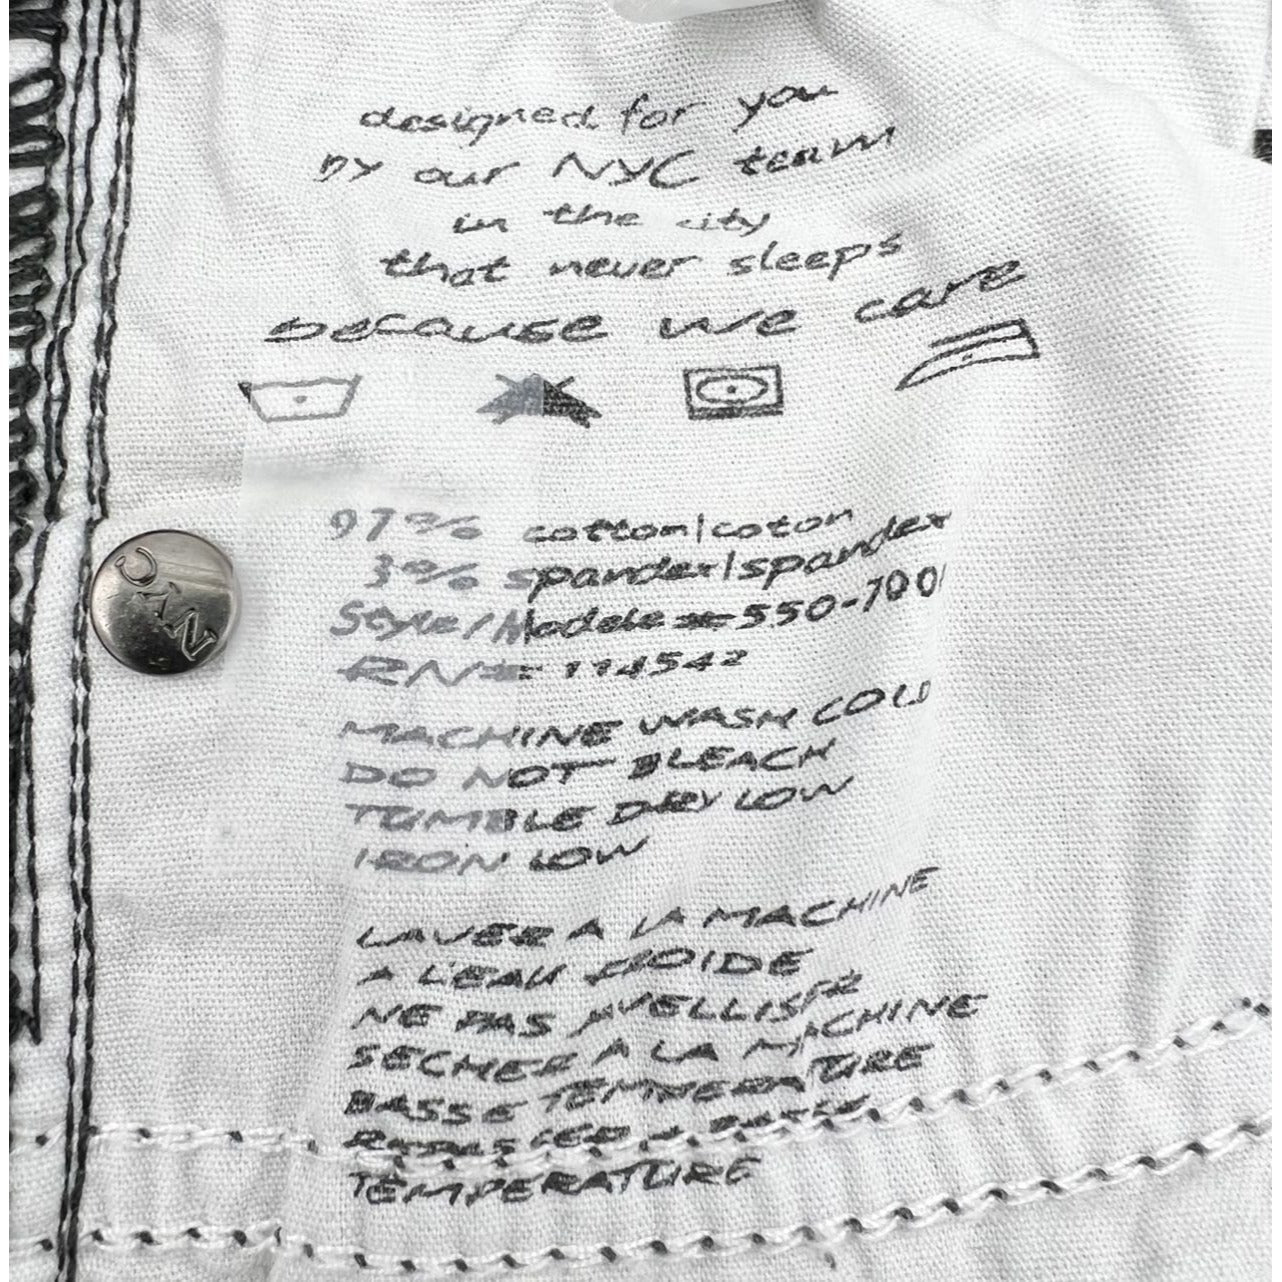 designed for you
by our NYC team
in the city
that never sleeps
because we care
97% cotton|coton
3% spandex|spandex
Style/Modele#550-700
RN# 114542
MACHINE WASH COLD
DO NOT BLEACH
TUMBLE DRY LOW
IRON LOW
NYC
LAVER A LA MACHINE
A L'EAU FROIDE
NE PAS JAVELLISER
SECHER A LA MACHINE
BASSE TEMPERATURE
REPASSER A BASSE
TEMPERATURE